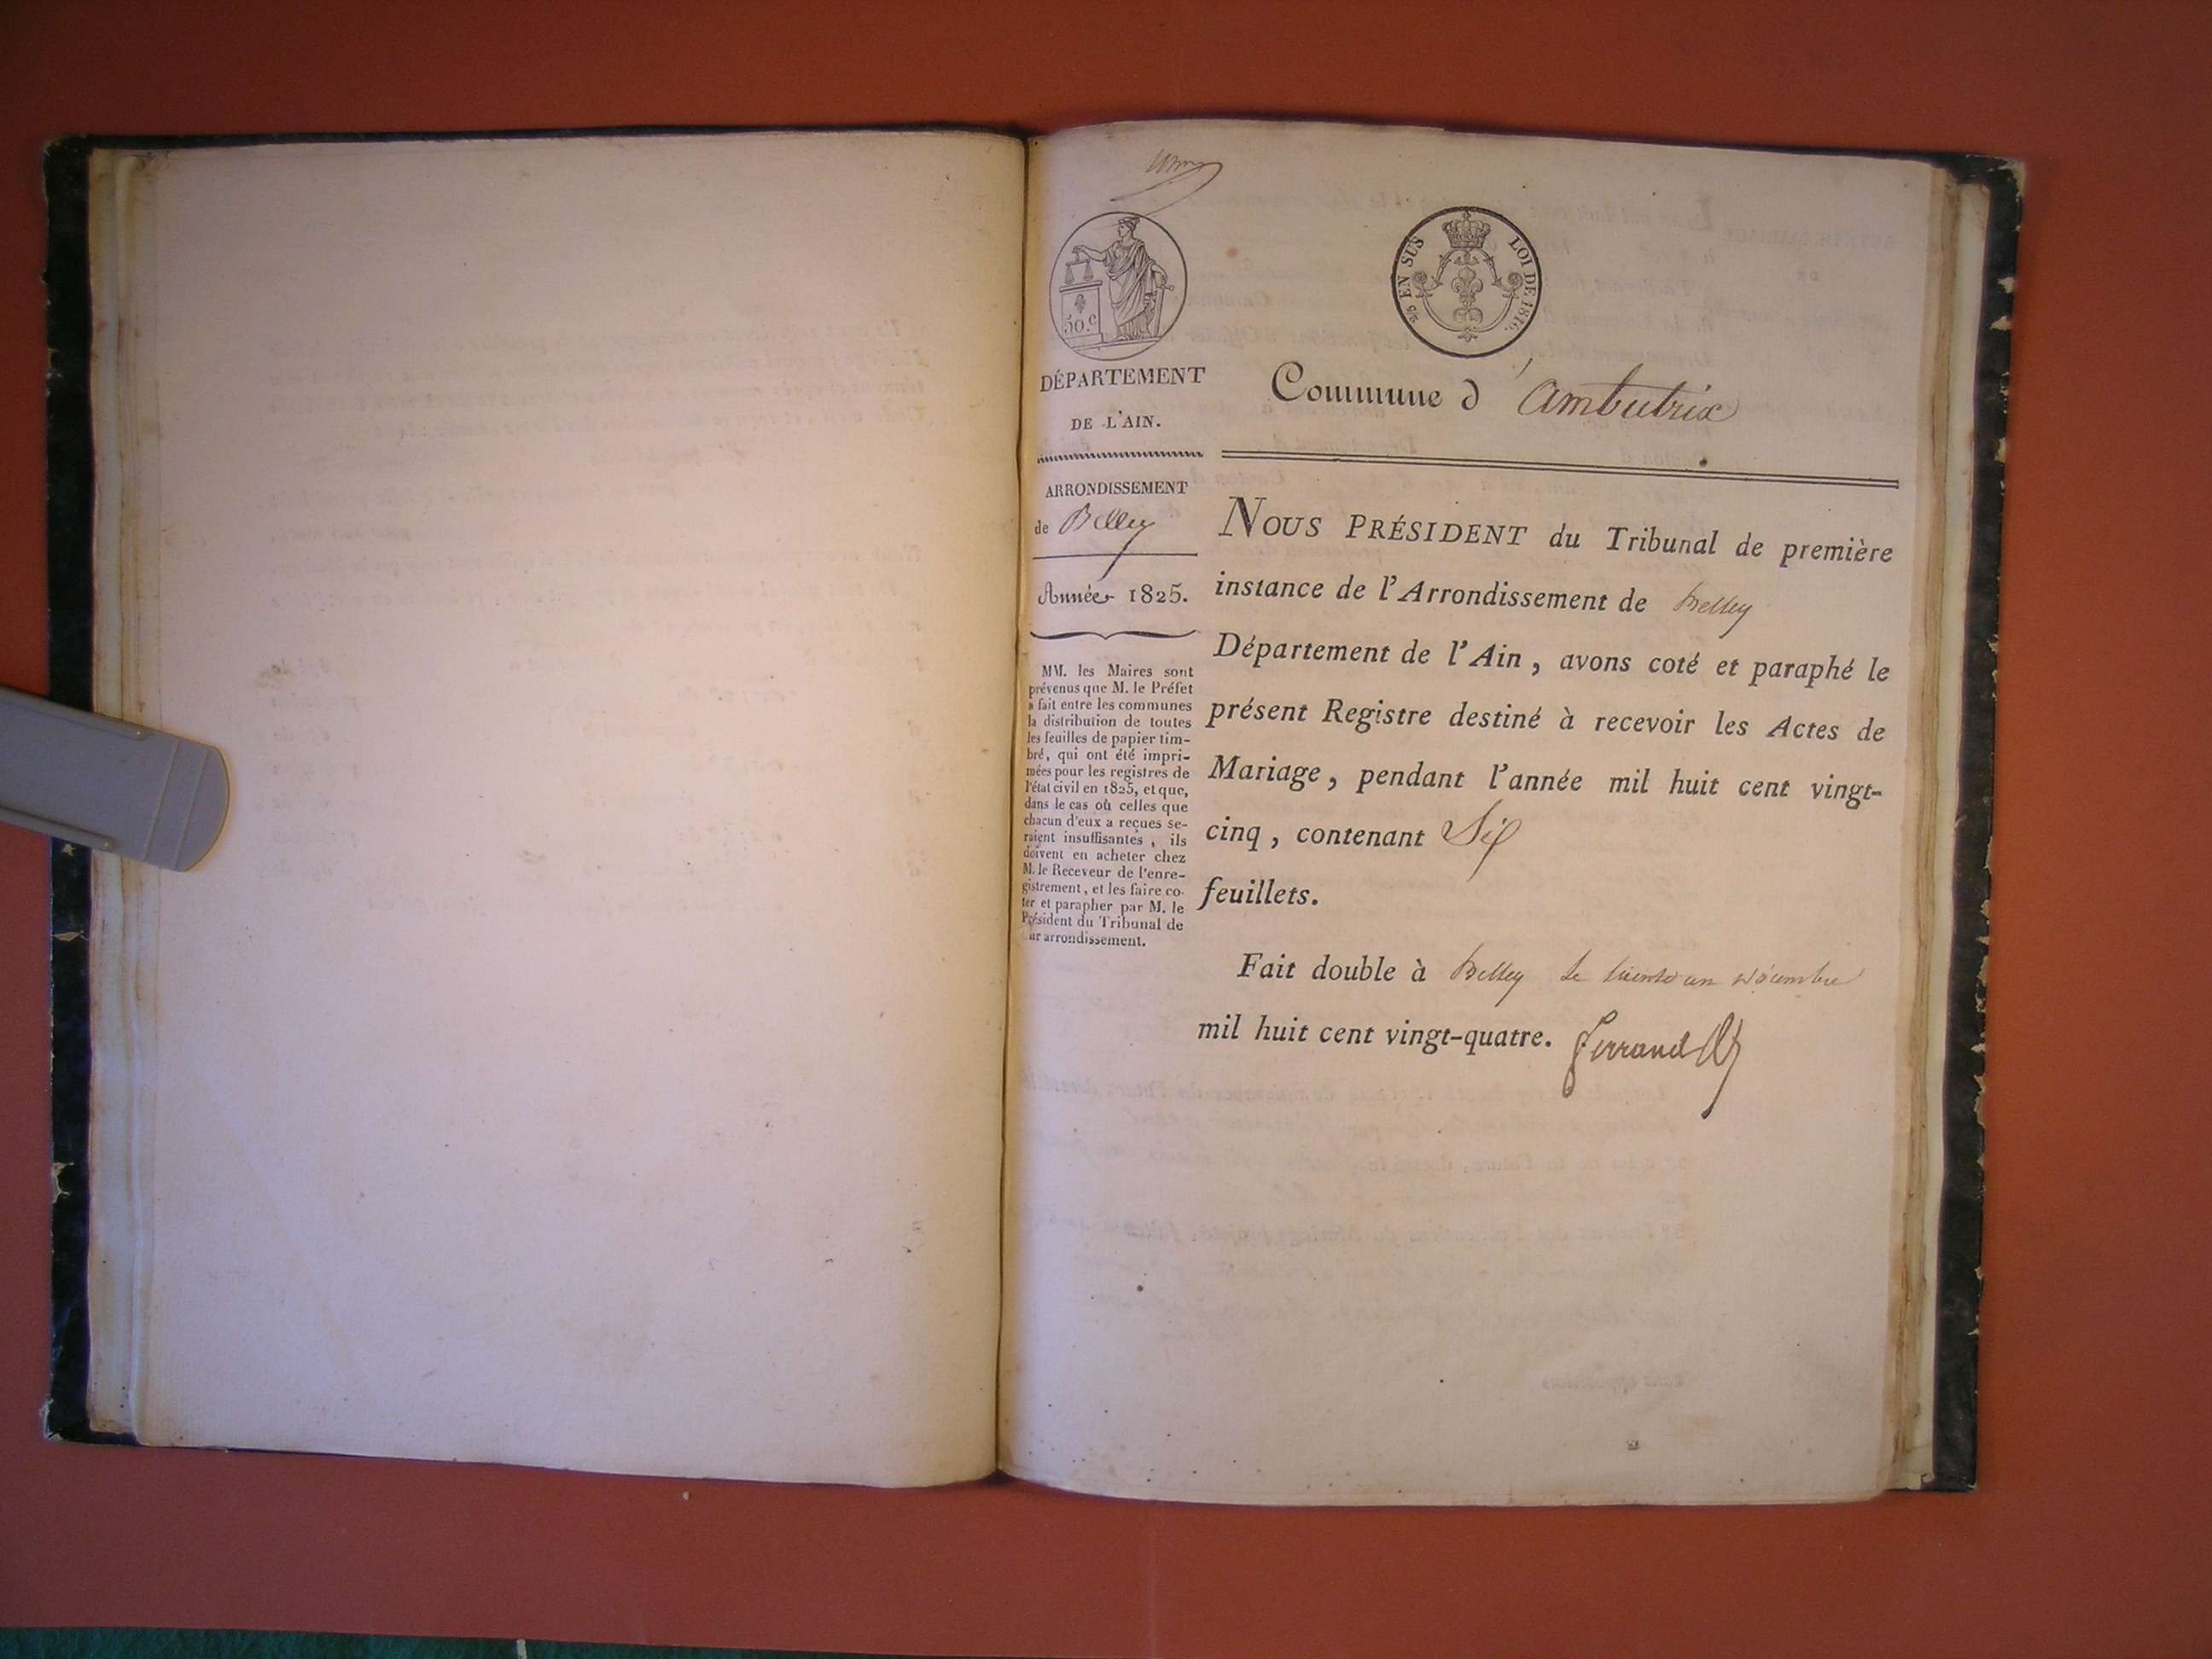 50.c
25 EN SUS LOI DE 1816.
DÉPARTEMENT
DE L'AIN.
ARRONDISSEMENT
de Belley
Année 1825.
MM. les Maires sont
prévenus que M. le Préfet
a fait entre les communes
la distribution de toutes
les feuilles de papier tim-
bré, qui ont été impri-
mées pour les registres de
l'état civil en 1825, et que,
dans le cas où celles que
chacun d'eux a reçues se-
raient insuffisantes, ils
doivent en acheter chez
M. le Receveur de l'enre-
gistrement, et les faire co-
ter et parapher par M. le
Président du Tribunal de
ur arrondissement.
Commune d'Ambutrix
NOUS PRÉSIDENT du Tribunal de première
instance de l'Arrondissement de Belley
Département de l'Ain, avons coté et paraphé le
présent Registre destiné à recevoir les Actes de
Mariage, pendant l'année mil huit cent vingt-
cinq, contenant Six
feuillets.
Fait double à Belley le trente un décembre
mil huit cent vingt-quatre. Ferrand